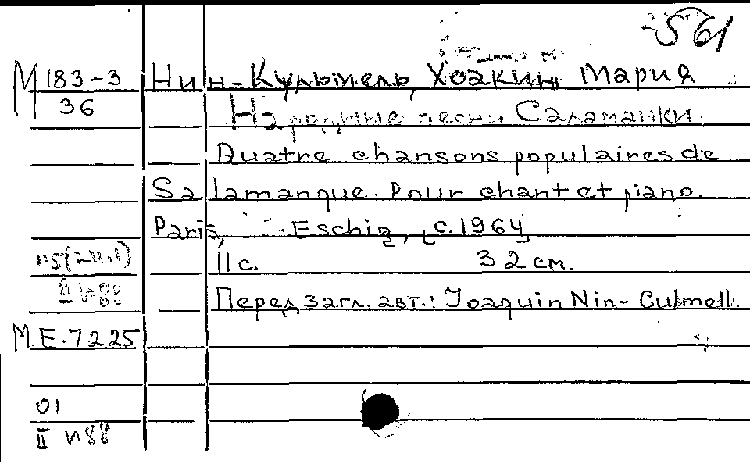 561
М 183-3 Нин-Кульмель, Хоакин Мария
36 Народные песни Саламанки.
Quatre chansons populaires de
Salamanque. Pour chant et piano.
Paris, Eschig, [c.1964]
11 с. 32 см.
II н88 Перед загл. авт.: Joaquin Nin-Culmell.
M.E.7225
01
II н88